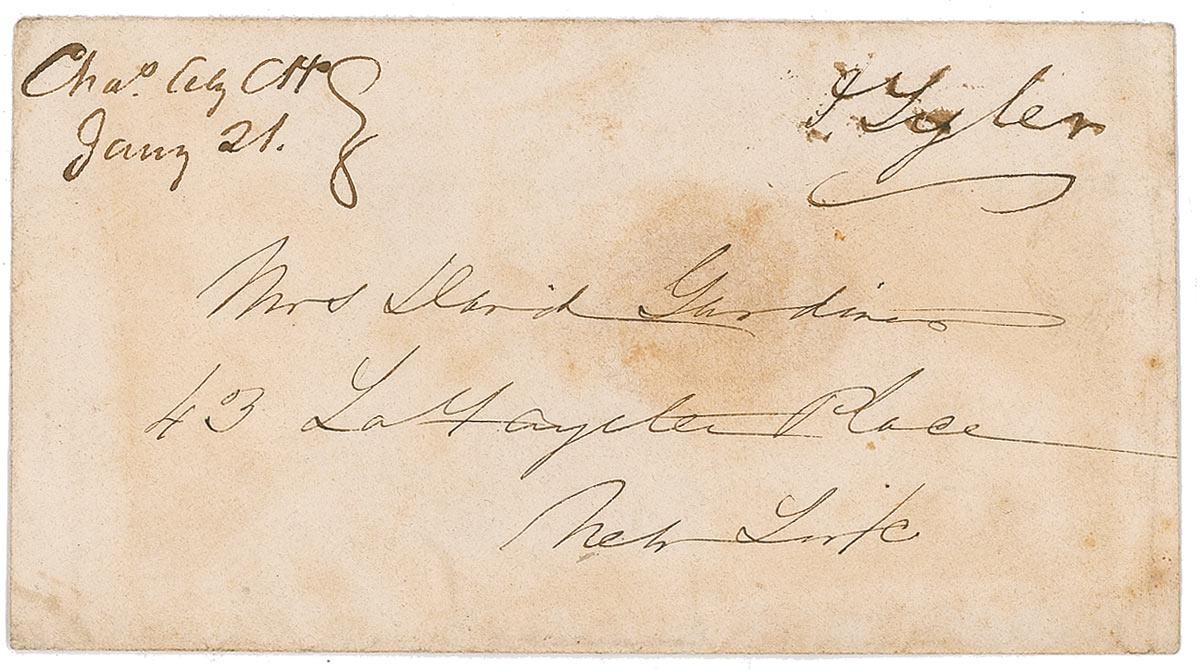 Chas City CH
Jany 21.
J Tyler
Mrs David Gardiner
43 LaFayette Place
New York